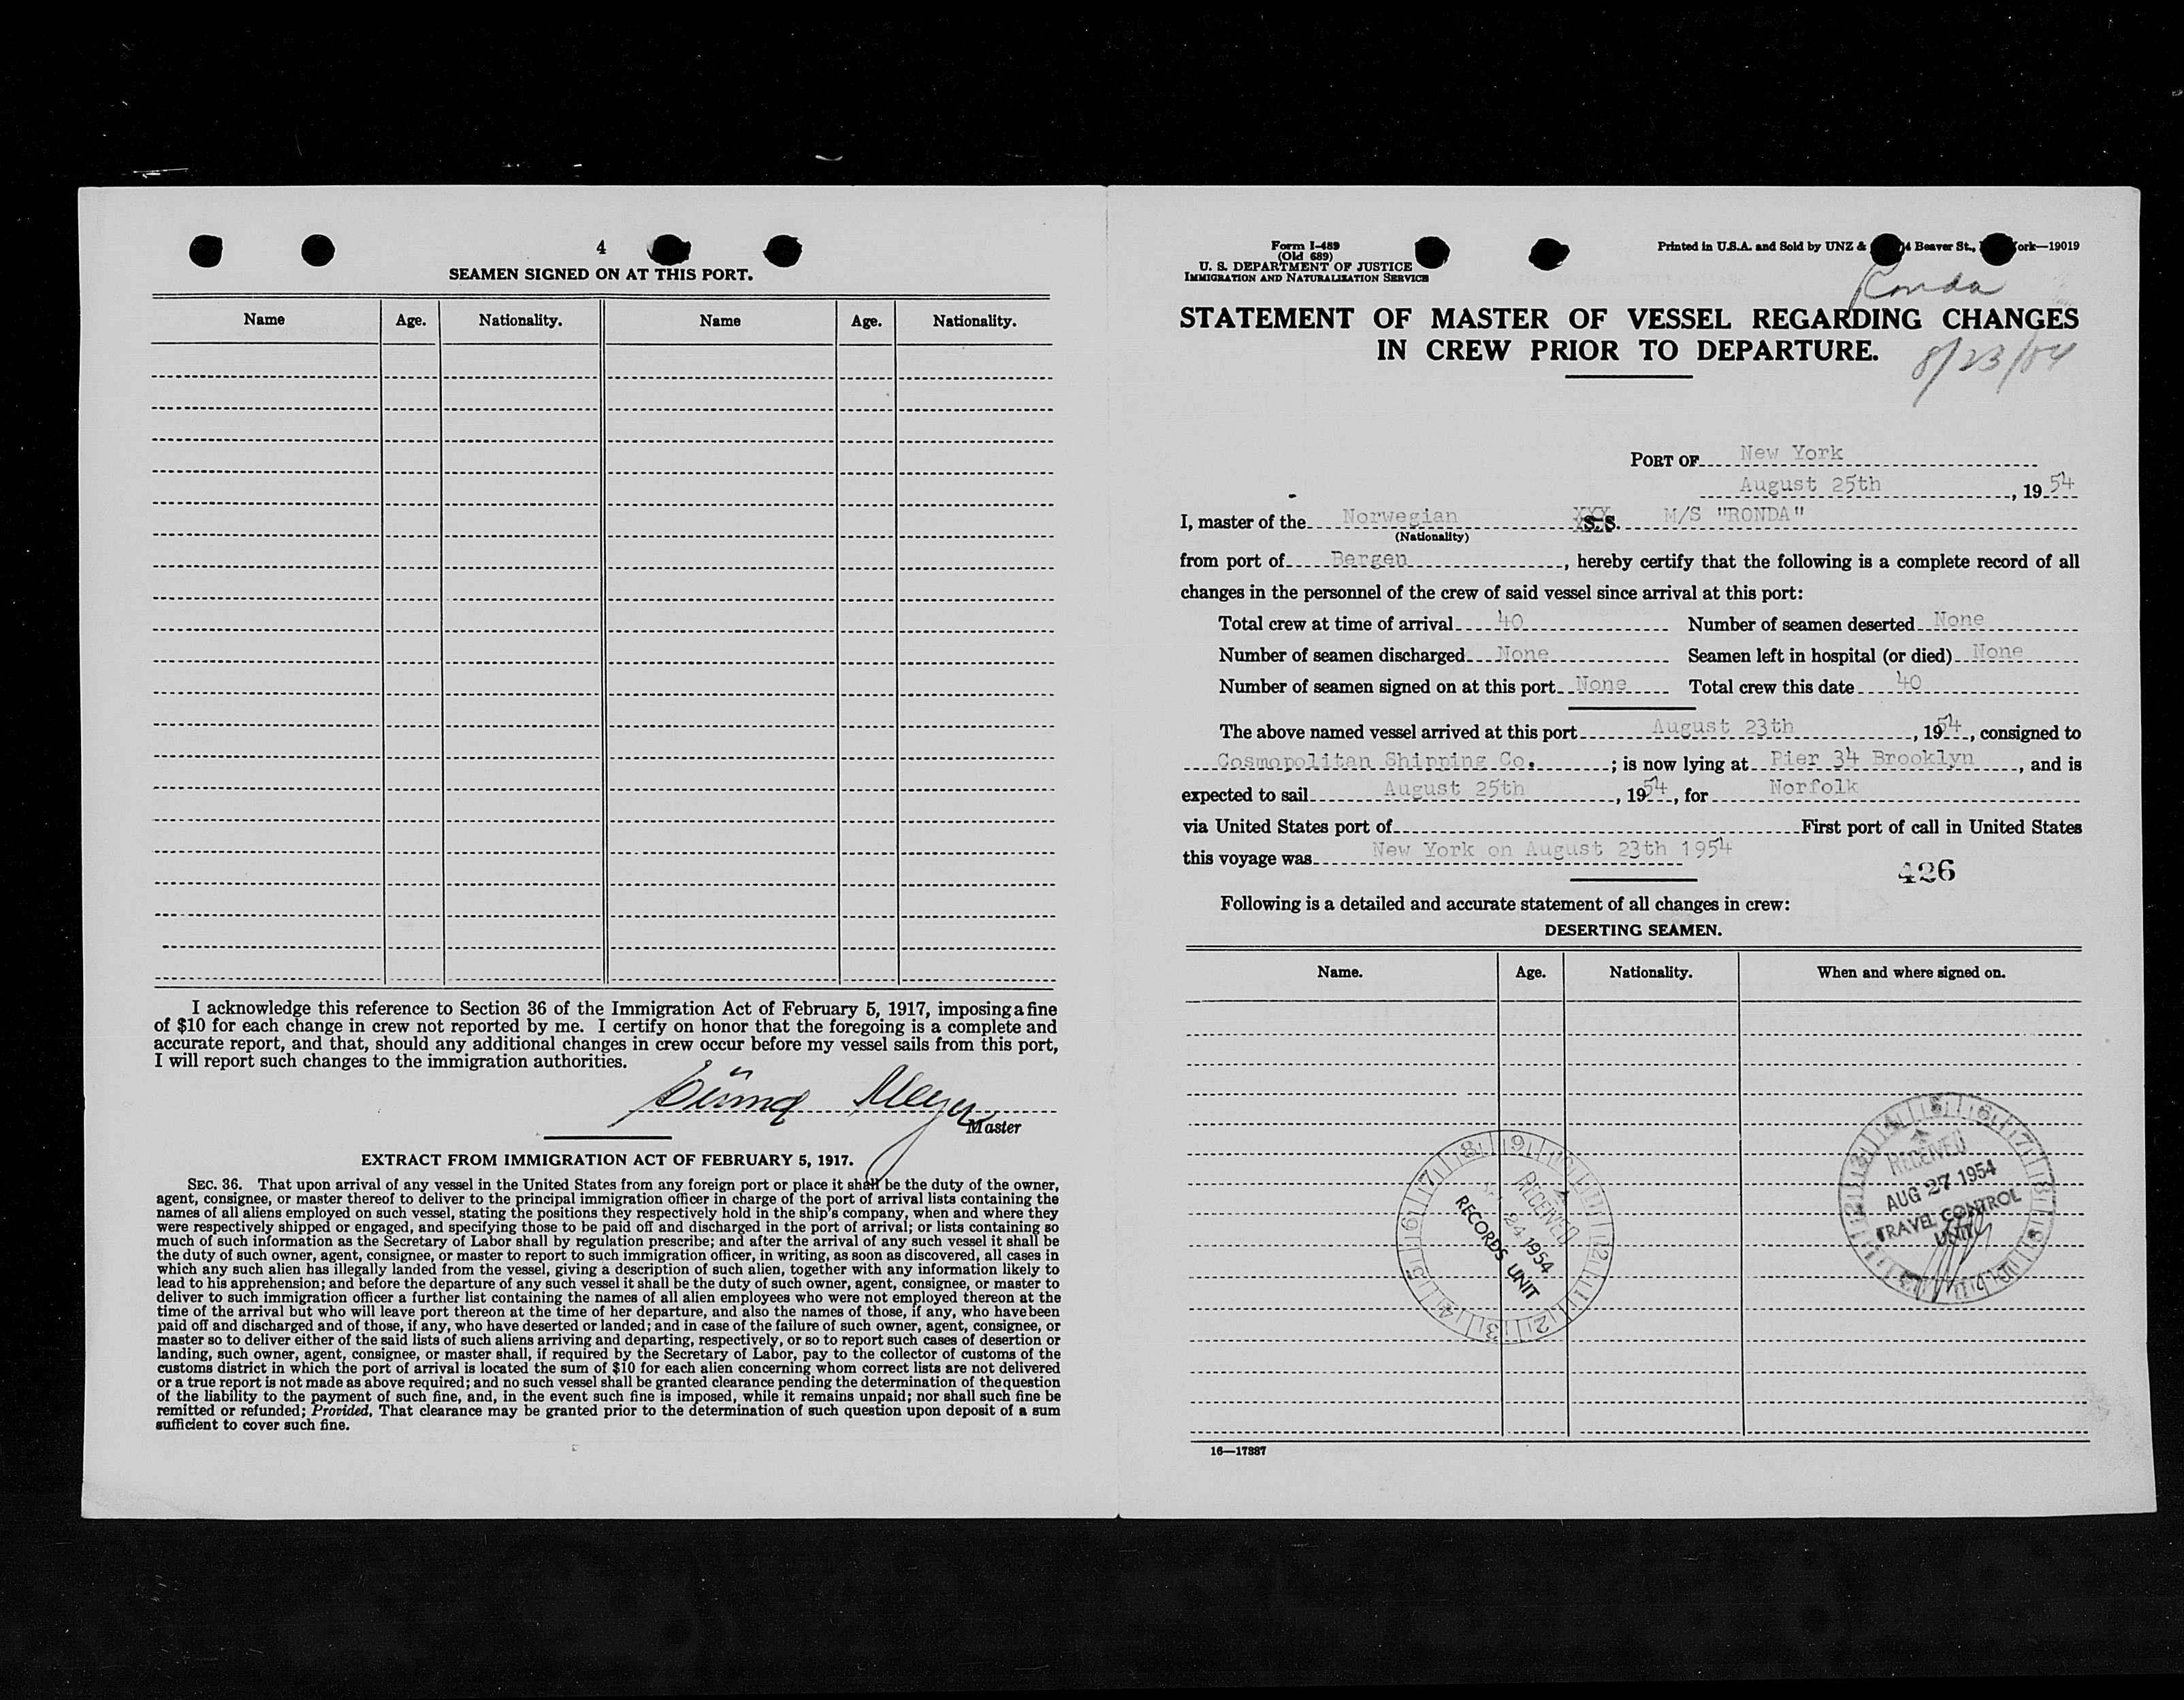 4
SEAMEN SIGNED ON AT THIS PORT.
Name Age. Nationality. Name Age. Nationality.
I acknowledge this reference to Section 36 of the Immigration Act of February 5, 1917, imposing a fine
of $10 for each change in crew not reported by me. I certify on honor that the foregoing is a complete and
accurate report, and that, should any additional changes in crew occur before my vessel sails from this port,
I will report such changes to the immigration authorities.
Meyer
Master
EXTRACT FROM IMMIGRATION ACT OF FEBRUARY 5, 1917.
SEC. 36. That upon arrival of any vessel in the United States from any foreign port or place it shall be the duty of the owner,
agent, consignee, or master thereof to deliver to the principal immigration officer in charge of the port of arrival lists containing the
names of all aliens employed on such vessel, stating the positions they respectively hold in the ship's company, when and where they
were respectively shipped or engaged, and specifying those to be paid off and discharged in the port of arrival; or lists containing so
much of such information as the Secretary of Labor shall by regulation prescribe; and after the arrival of any such vessel it shall be
the duty of such owner, agent, consignee, or master to report to such immigration officer, in writing, as soon as discovered, all cases in
which any such alien has illegally landed from the vessel, giving a description of such alien, together with any information likely to
lead to his apprehension; and before the departure of any such vessel it shall be the duty of such owner, agent, consignee, or master to
deliver to such immigration officer a further list containing the names of all alien employees who were not employed thereon at the
time of the arrival but who will leave port thereon at the time of her departure, and also the names of those, if any, who have been
paid off and discharged and of those, if any, who have deserted or landed; and in case of the failure of such owner, agent, consignee, or
master so to deliver either of the said lists of such aliens arriving and departing, respectively, or so to report such cases of desertion or
landing, such owner, agent, consignee, or master shall, if required by the Secretary of Labor, pay to the collector of customs of the
customs district in which the port of arrival is located the sum of $10 for each alien concerning whom correct lists are not delivered
or a true report is not made as above required; and no such vessel shall be granted clearance pending the determination of the question
of the liability to the payment of such fine, and, in the event such fine is imposed, while it remains unpaid; nor shall such fine be
remitted or refunded; Provided, That clearance may be granted prior to the determination of such question upon deposit of a sum
sufficient to cover such fine.
Form I-489
(Old 689)
U. S. DEPARTMENT OF JUSTICE
IMMIGRATION AND NATURALIZATION SERVICE
Printed in U.S.A. and Sold by UNZ & 4 Beaver St., ork—19019
Ronda
STATEMENT OF MASTER OF VESSEL REGARDING CHANGES
IN CREW PRIOR TO DEPARTURE.
8/23/54
PORT OF New York
August 25th, 19 54
I, master of the Norwegian XXX S.S. M/S "RONDA"
(Nationality)
from port of Bergen, hereby certify that the following is a complete record of all
changes in the personnel of the crew of said vessel since arrival at this port:
Total crew at time of arrival 40 Number of seamen deserted None
Number of seamen discharged None Seamen left in hospital (or died) None
Number of seamen signed on at this port None Total crew this date 40
The above named vessel arrived at this port August 23th, 1954, consigned to
Cosmopolitan Shipping Co.; is now lying at Pier 34 Brooklyn, and is
expected to sail August 25th, 1954, for Norfolk
via United States port of First port of call in United States
this voyage was New York on August 23th 1954
426
Following is a detailed and accurate statement of all changes in crew:
DESERTING SEAMEN.
Name. Age. Nationality. When and where signed on.
RECEIVED
24 1954
RECORDS UNIT
RECEIVED
AUG 27 1954
TRAVEL CONTROL
UNIT
16—17887